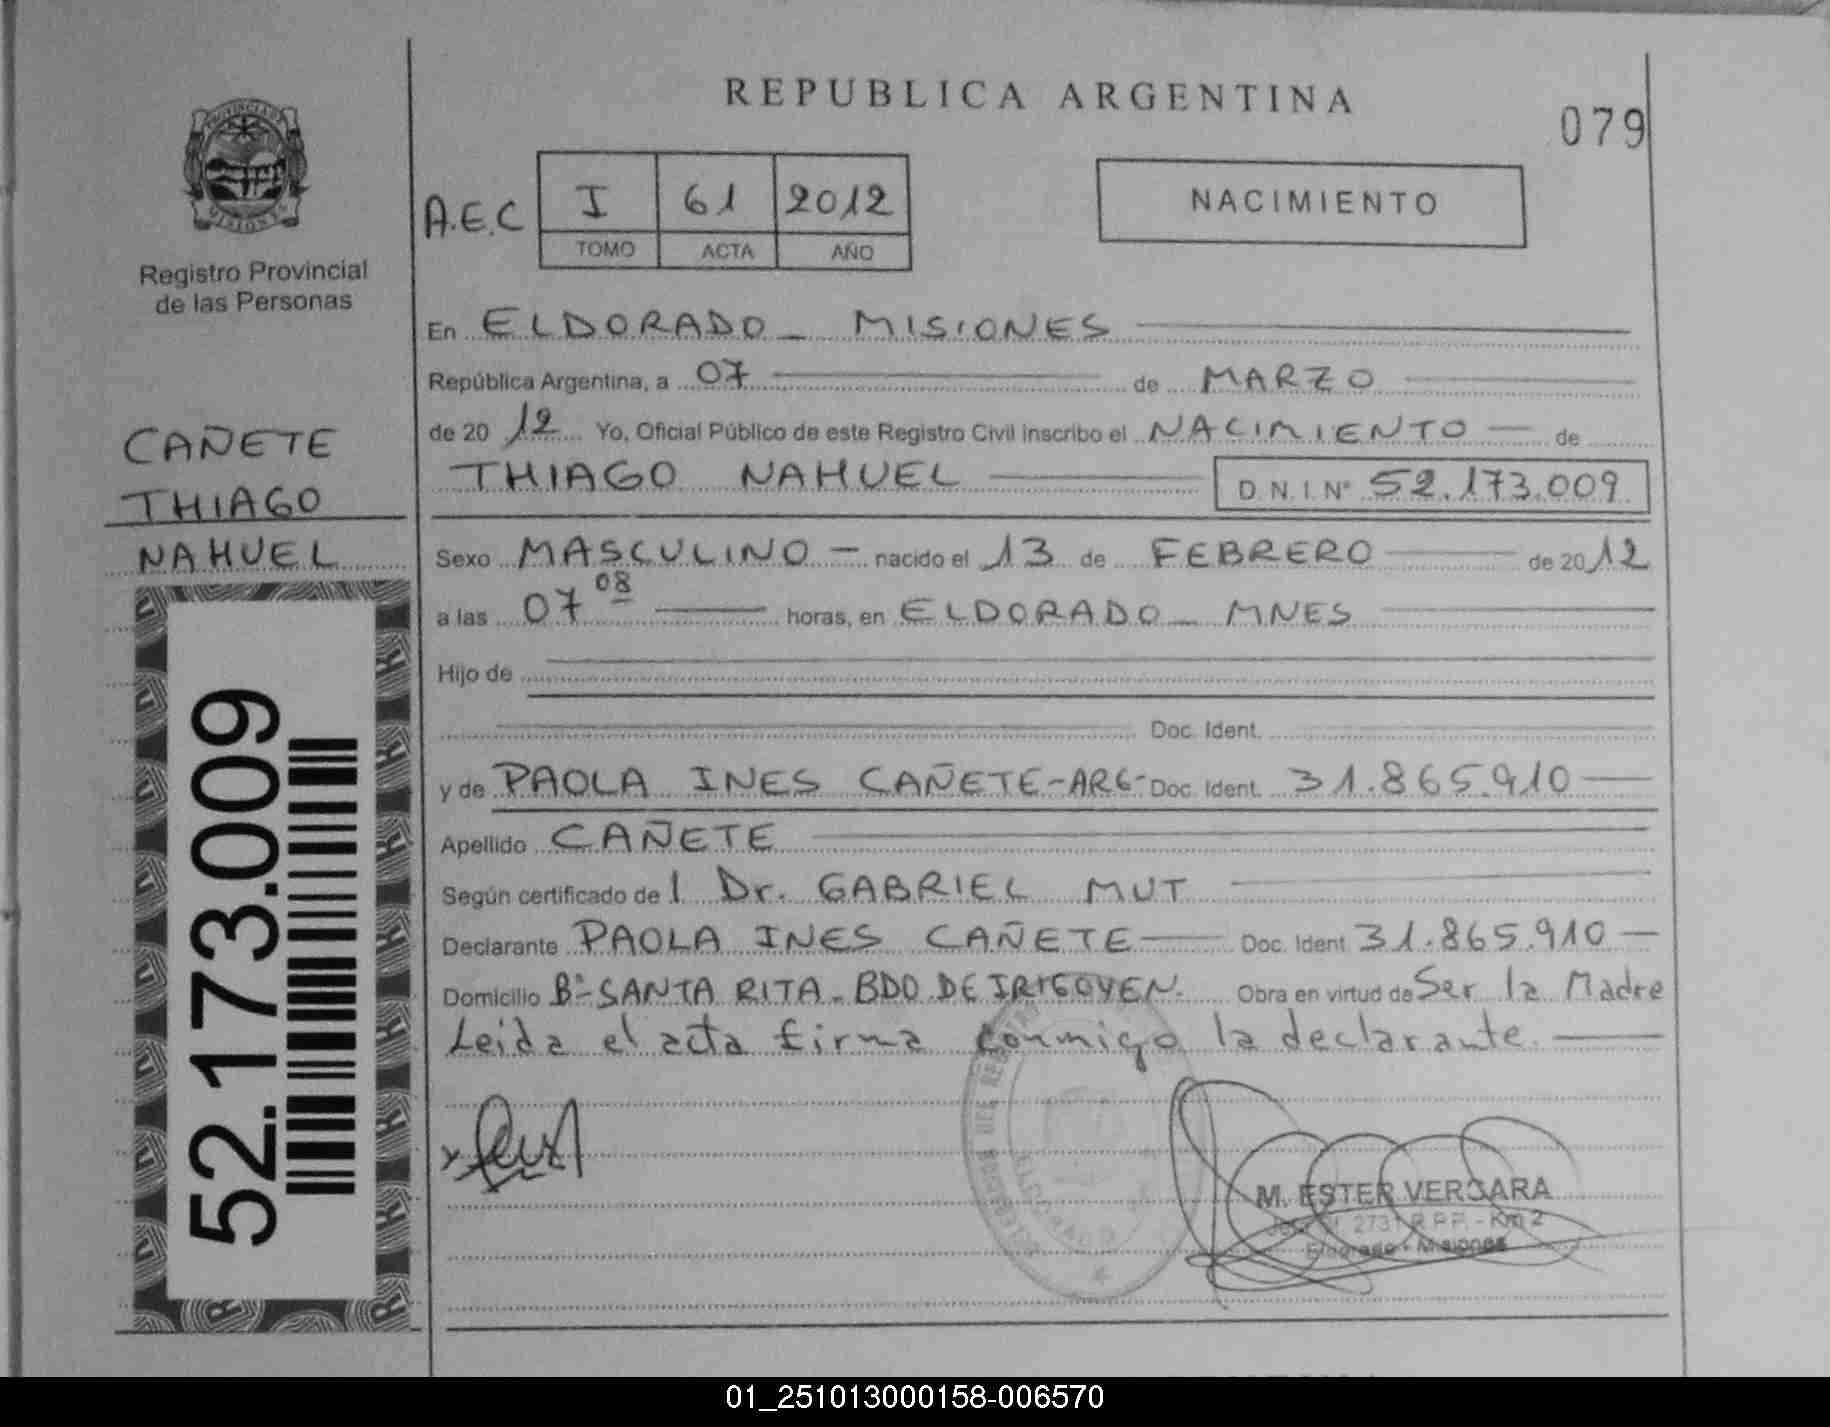 REPUBLICA ARGENTINA
079
PROVINCIA DE
MISIONES
Registro Provincial
de las Personas
A.E.C
I 61 2012
TOMO ACTA AÑO
NACIMIENTO
CAÑETE
THIAGO
NAHUEL
52.173.009
En ELDORADO - MISIONES
República Argentina, a 07 de MARZO
de 20 12 Yo, Oficial Público de este Registro Civil inscribo el NACIMIENTO - de
THIAGO NAHUEL D.N.I. Nº 52.173.009
Sexo MASCULINO - nacido el 13 de FEBRERO de 20 12
a las 07 08 horas, en ELDORADO - MNES
Hijo de
Doc. Ident.
y de PAOLA INES CAÑETE-ARG- Doc. Ident. 31.865.910
Apellido CAÑETE
Según certificado de l Dr. GABRIEL MUT
Declarante PAOLA INES CAÑETE Doc. Ident. 31.865.910
Domicilio Bº-SANTA RITA - BDO DE IRIGOYEN. Obra en virtud de Ser la Madre
Leida el acta firma conmigo la declarante.
ELDORADO
M. ESTER VERGARA
2731 R.P.P. - Km 2
Eldorado - Misiones
01_251013000158-006570